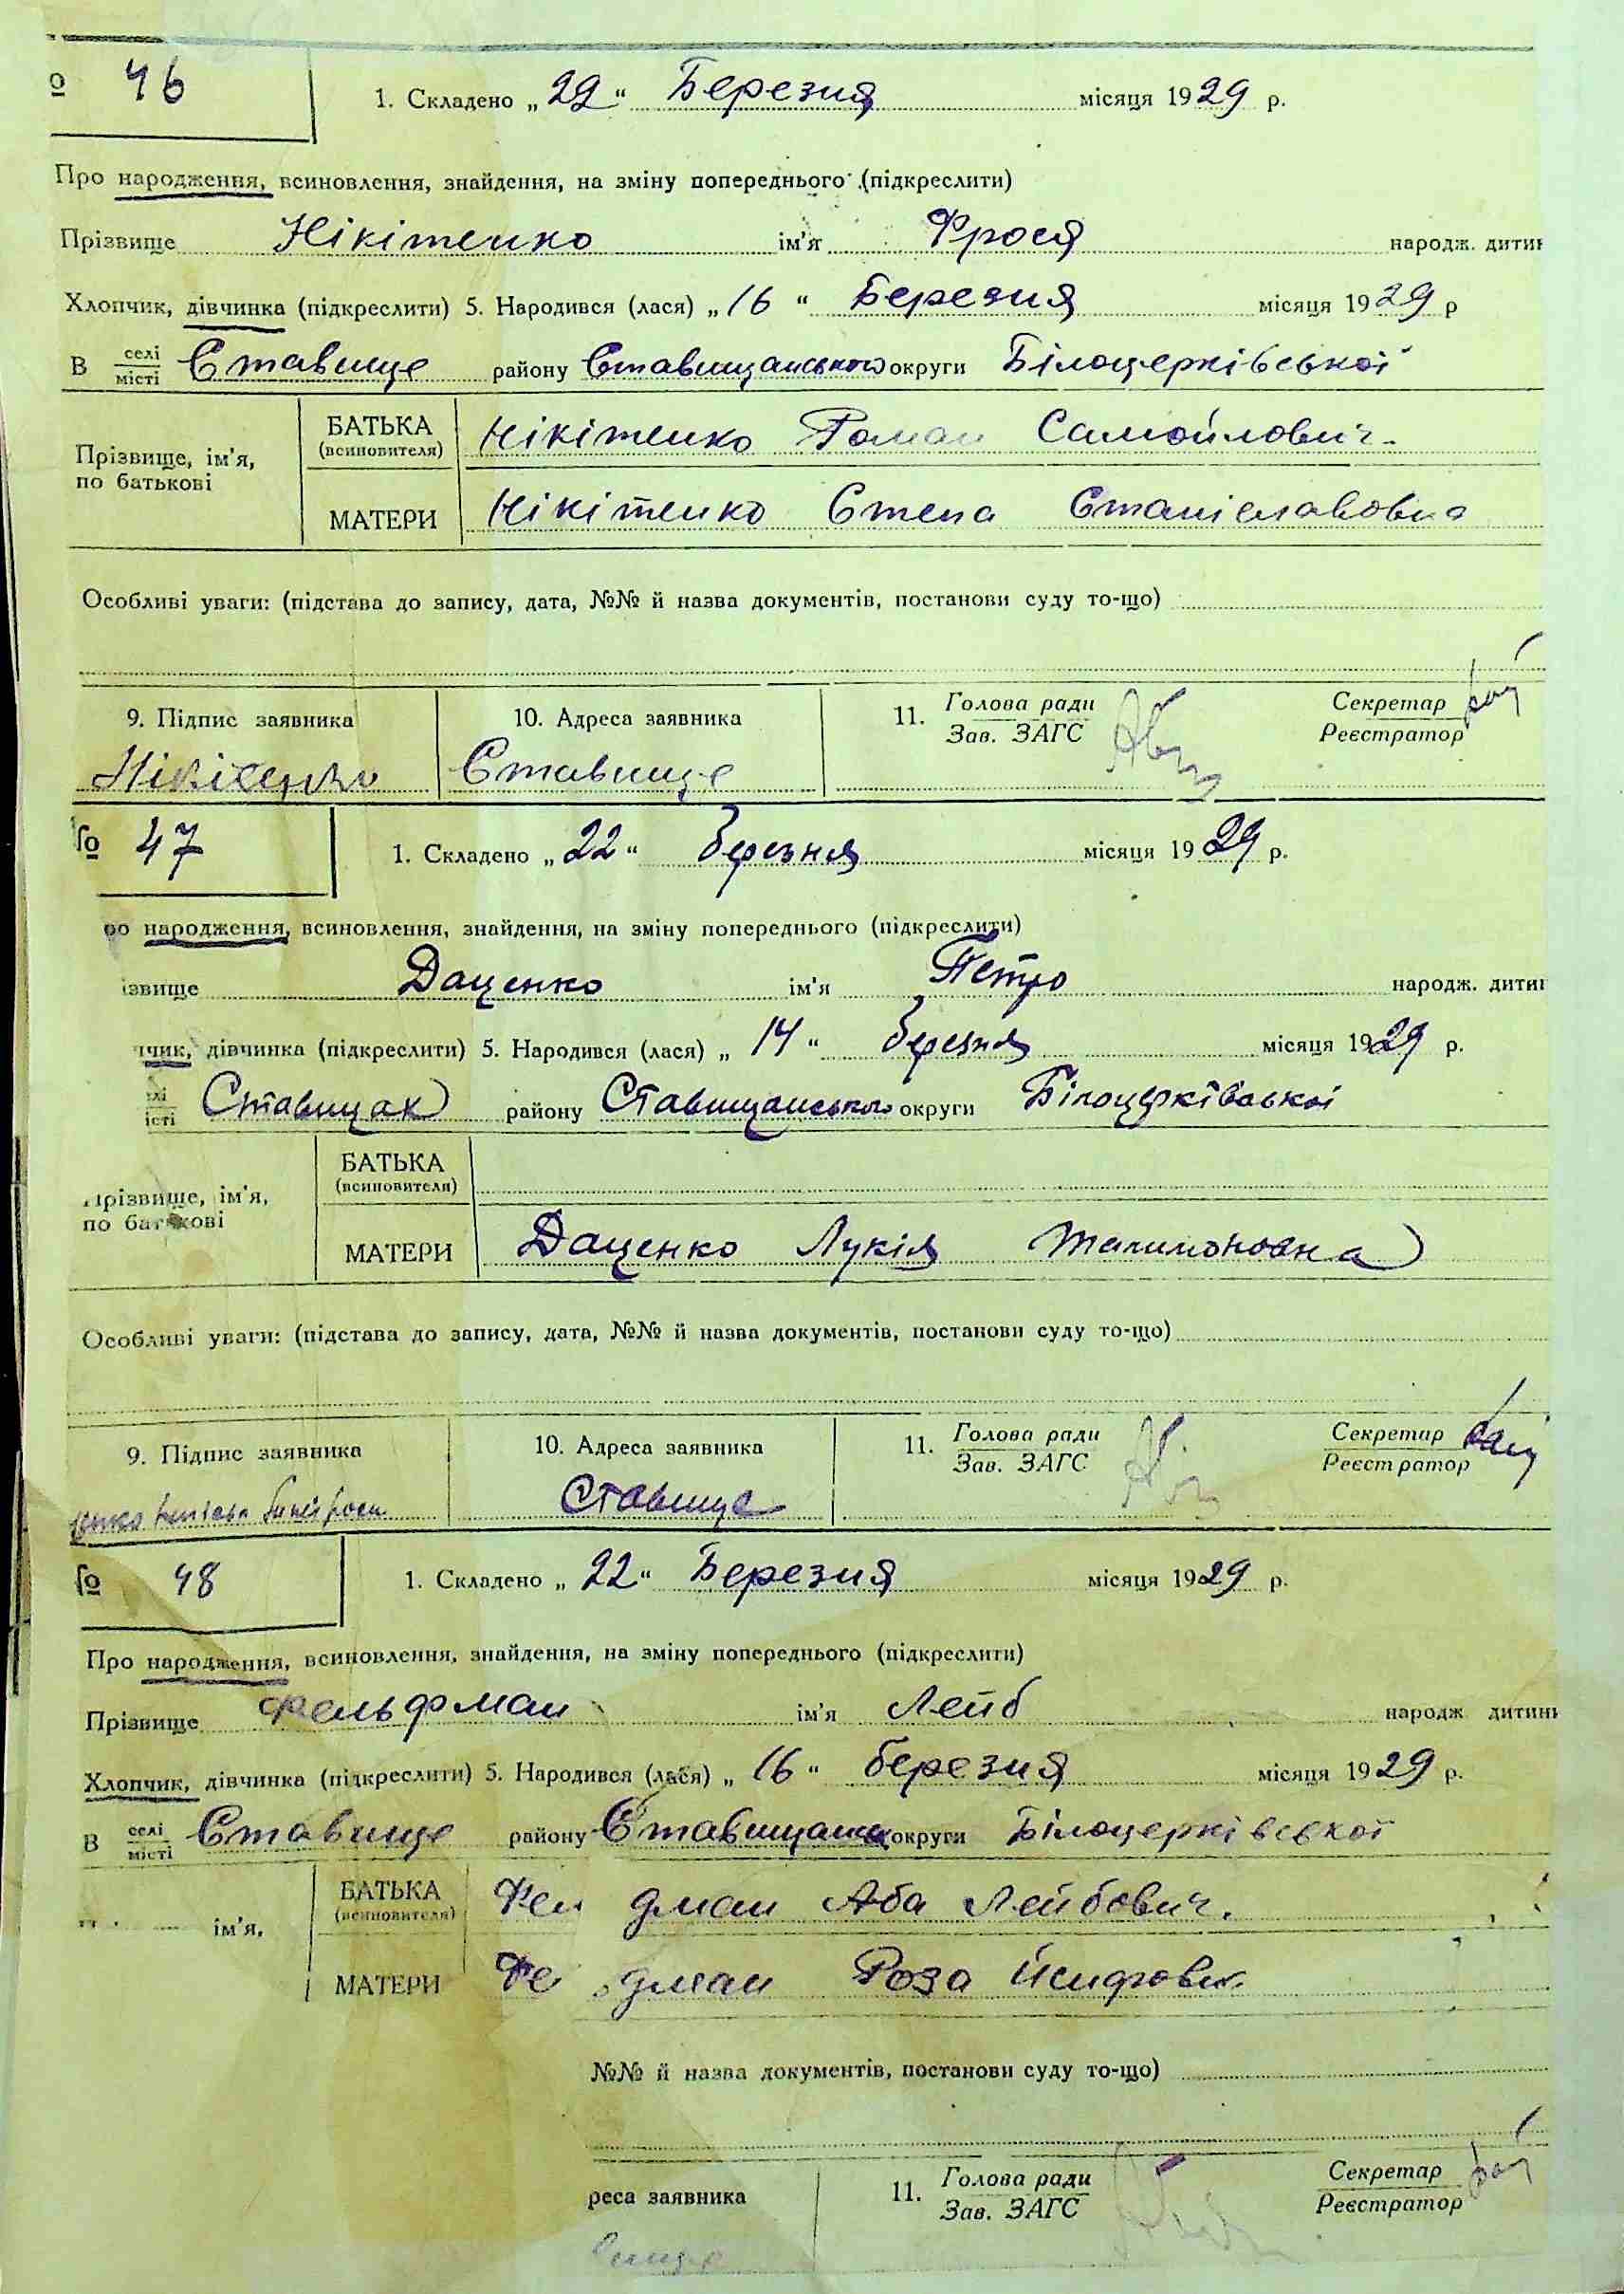 № 46
1. Складено „22“ Березня місяця 1929 р.
Про народження, всиновлення, знайдення, на зміну попереднього (підкреслити)
Прізвище Нікітенко ім'я Фрося народж. дитин
Хлопчик, дівчинка (підкреслити) 5. Народився (лася) „16“ Березня місяця 1929 р
В селі місті Ставище району Ставищанського округи Білоцерківської
Прізвище, ім'я, по батькові
БАТЬКА (всиновителя) Нікітенко Роман Самойлович.
МАТЕРИ Нікітенко Степа Станіславовна
Особливі уваги: (підстава до запису, дата, №№ й назва документів, постанови суду то-що)
9. Підпис заявника 10. Адреса заявника 11. Голова ради Зав. ЗАГС Секретар Реєстратор
Нікітенко Ставище
№ 47
1. Складено „22“ березня місяця 1929 р.
ро народження, всиновлення, знайдення, на зміну попереднього (підкреслити)
ізвище Даценко ім'я Петро народж. дити
пчик, дівчинка (підкреслити) 5. Народився (лася) „14“ березня місяця 1929 р.
лі істі Ставищах району Ставищанського округи Білоцерківської
Прізвище, ім'я, по батькові
БАТЬКА (всиновителя)
МАТЕРИ Даценко Лукія Талимоновна
Особливі уваги: (підстава до запису, дата, №№ й назва документів, постанови суду то-що)
9. Підпис заявника 10. Адреса заявника 11. Голова ради Зав. ЗАГС Секретар Реєстратор
Ставище
№ 48
1. Складено „22“ Березня місяця 1929 р.
Про народження, всиновлення, знайдення, на зміну попереднього (підкреслити)
Прізвище Фельдман ім'я Лейб народж дитин
Хлопчик, дівчинка (підкреслити) 5. Народився (лася) „16“ березня місяця 1929 р.
В селі місті Ставище району округи Білоцерківської
ім'я,
БАТЬКА (всиновителя) Фел дман Аба Лейбович.
МАТЕРИ Фе дман Роза
№№ й назва документів, постанови суду то-що)
реса заявника 11. Голова ради Зав. ЗАГС Секретар Реєстратор